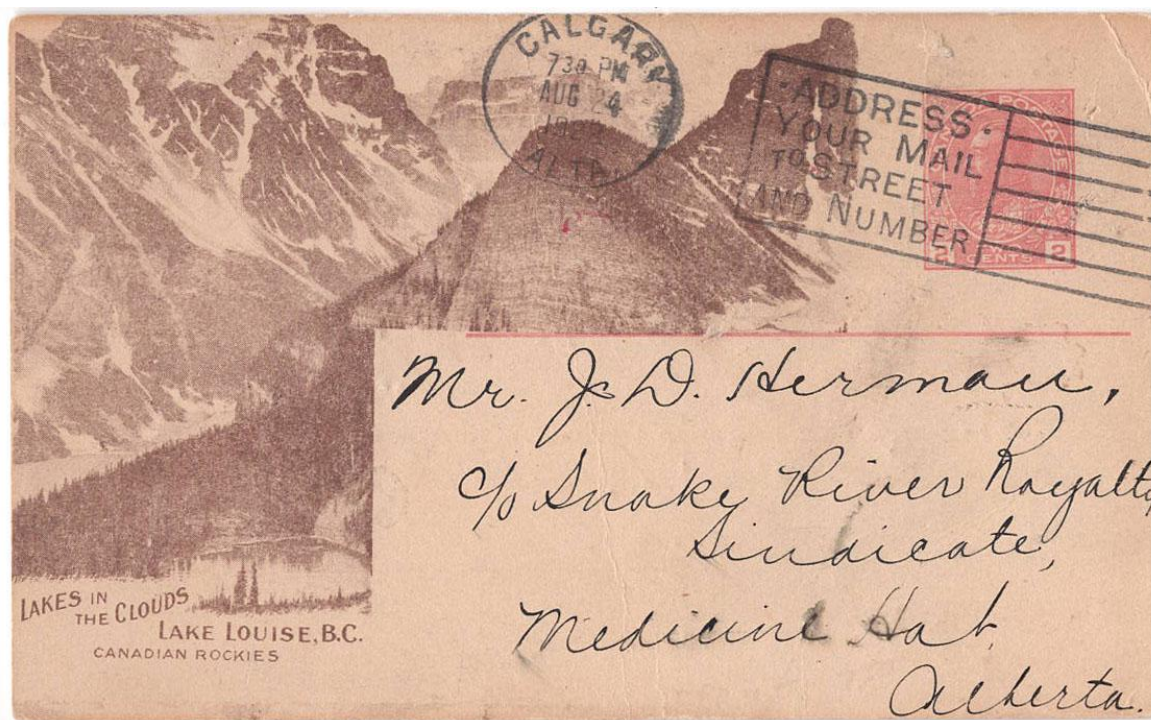 CALGARY
730 PM
AUG 24
ALTA.
ADDRESS
YOUR MAIL
TO STREET
AND NUMBER
POSTAGE
2 CENTS 2
Mr. J. D. Herman,
c/o Snaky River Royalty
Sindicate,
Medicine Hat
Alberta.
LAKES IN
THE CLOUDS
LAKE LOUISE, B.C.
CANADIAN ROCKIES